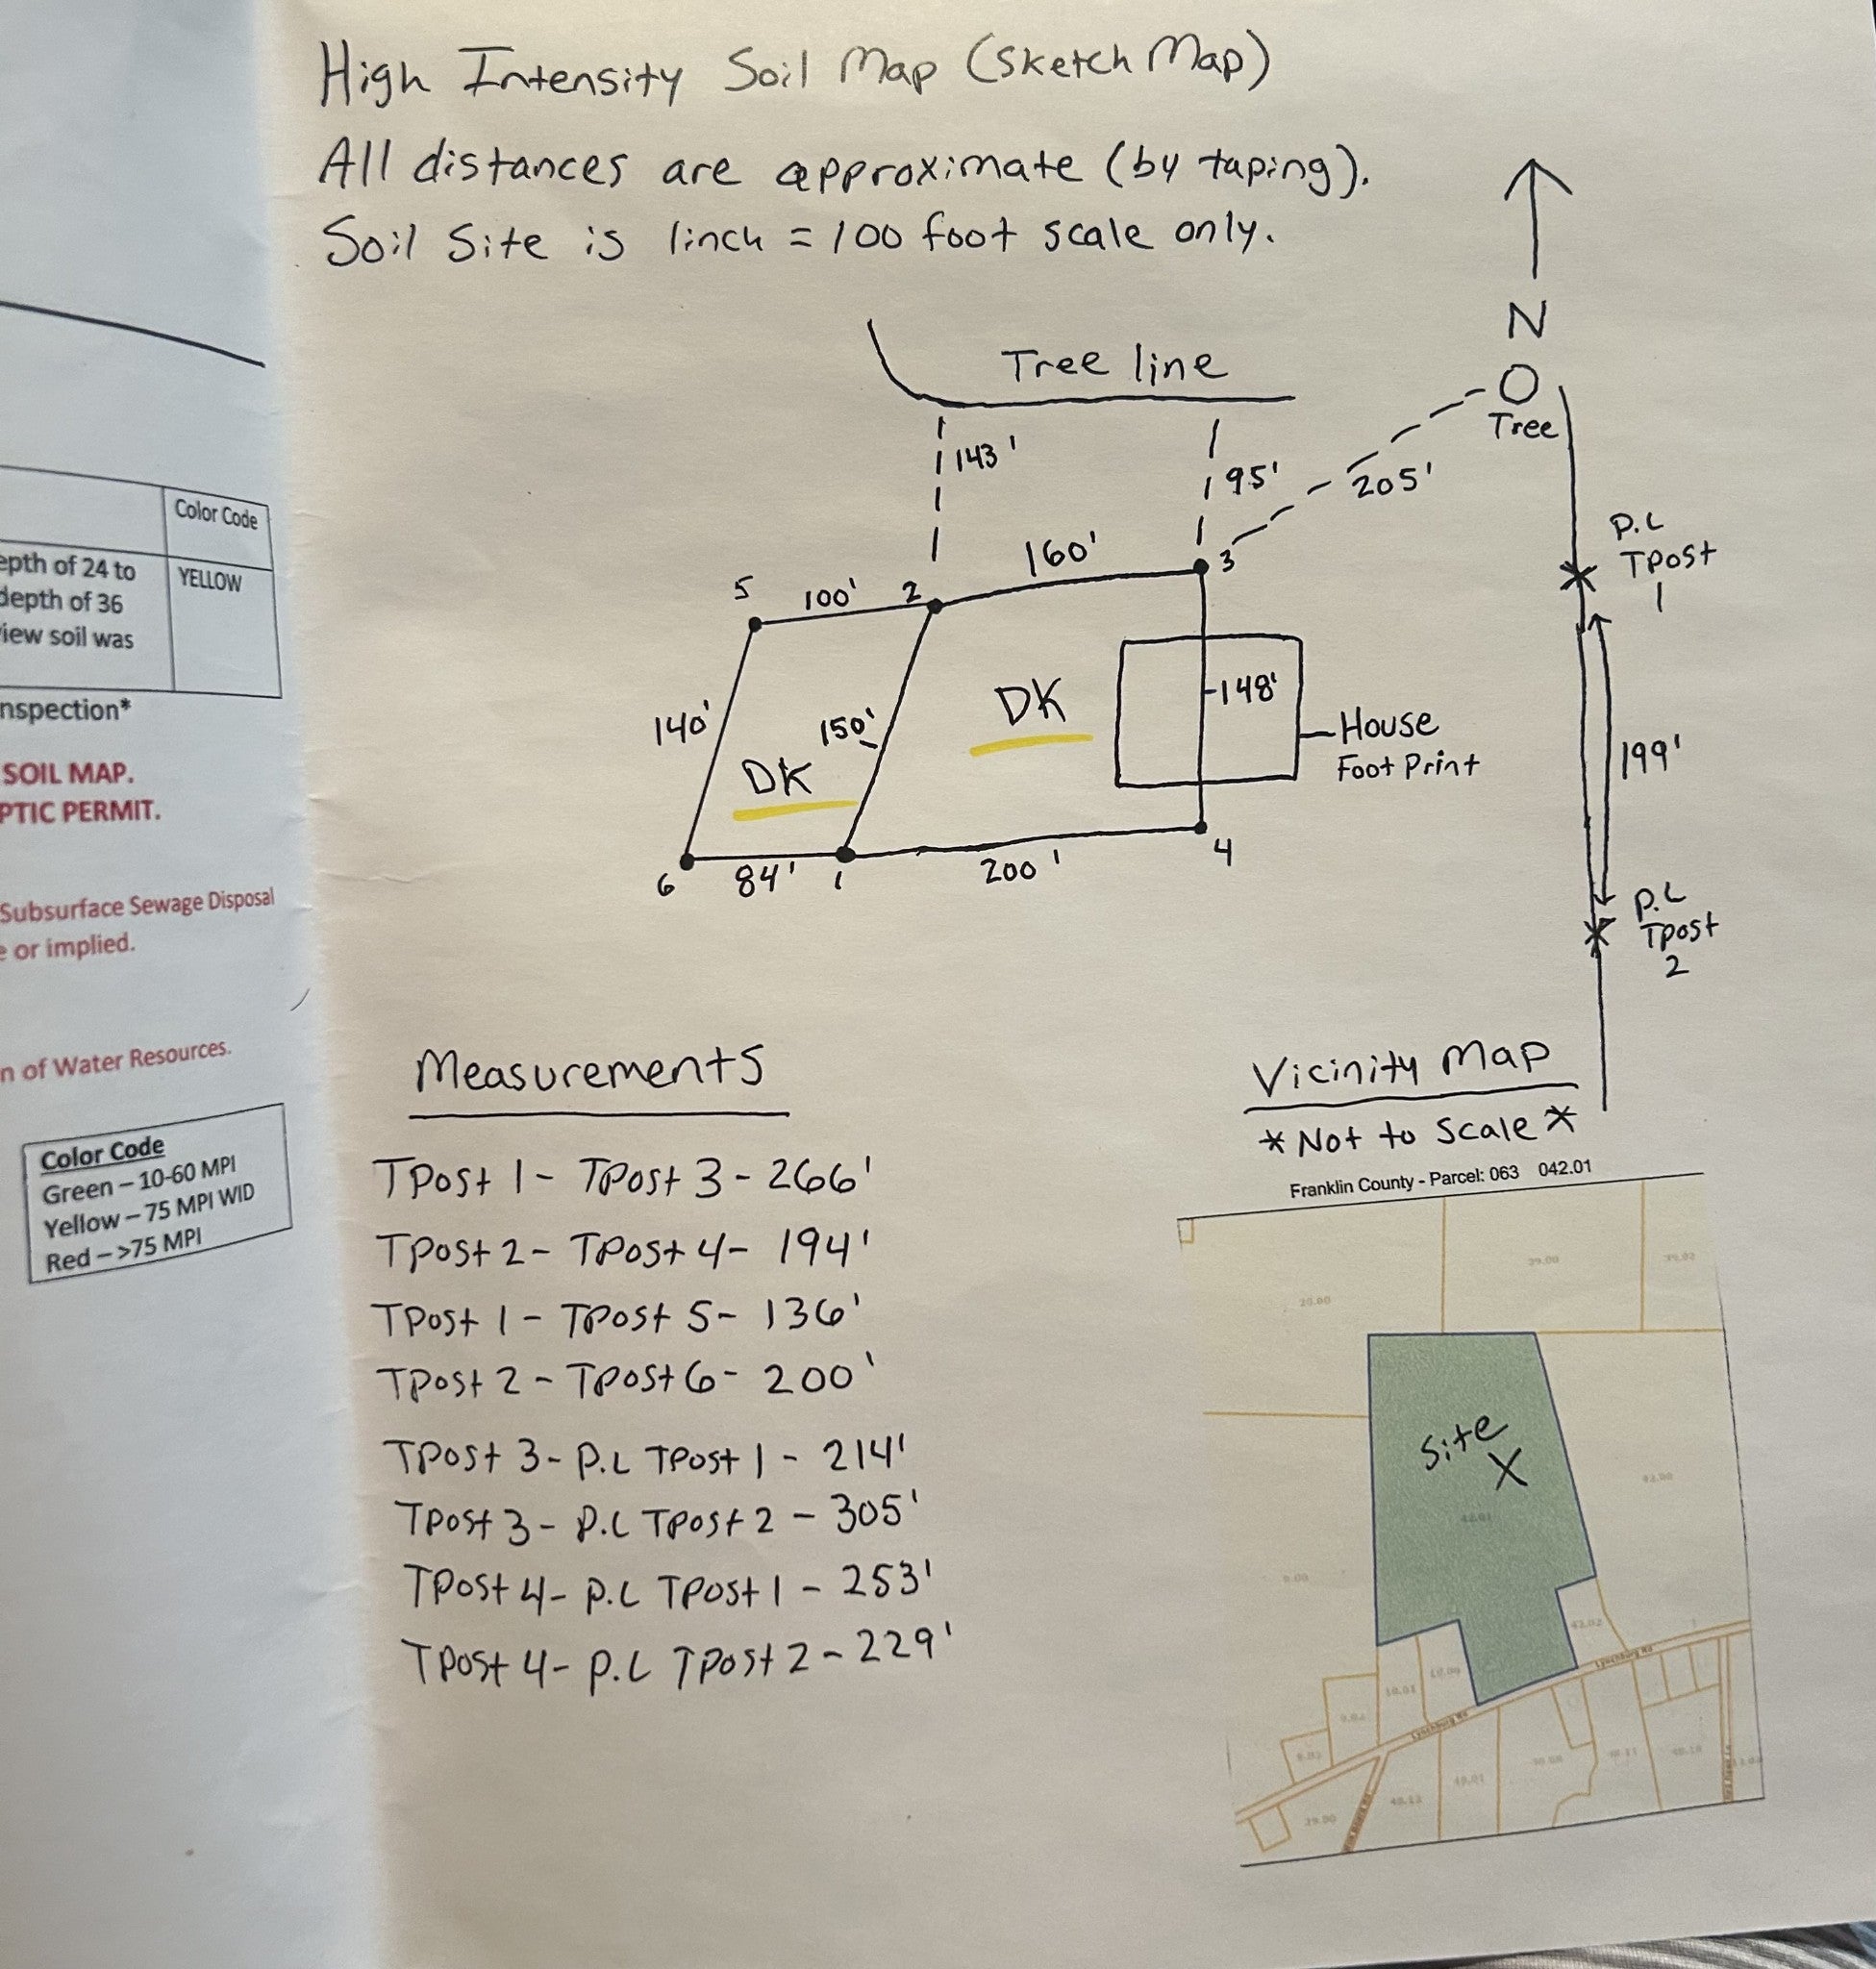 High Intensity Soil Map (Sketch Map)
All distances are approximate (by taping).
Soil Site is 1inch = 100 foot scale only.
N
Tree
Tree line
143'
95'
205'
160'
3
5
100'
2
P.L
TPost
1
140'
150'
DK
DK
148'
House
Foot Print
199'
6
84'
1
200'
4
P.L
TPost
2
Color Code
epth of 24 to
depth of 36
view soil was
YELLOW
nspection*
SOIL MAP.
PTIC PERMIT.
Subsurface Sewage Disposal
e or implied.
n of Water Resources.
Color Code
Green – 10-60 MPI
Yellow – 75 MPI WID
Red – >75 MPI
Measurements
TPost 1 - TPost 3 - 266'
TPost 2 - TPost 4 - 194'
TPost 1 - TPost 5 - 136'
TPost 2 - TPost 6 - 200'
TPost 3 - P.L TPost 1 - 214'
TPost 3 - P.L TPost 2 - 305'
TPost 4 - P.L TPost 1 - 253'
TPost 4 - P.L TPost 2 - 229'
Vicinity Map
* Not to Scale *
Franklin County - Parcel: 063 042.01
29.00
Site
X
Lynchburg Rd
Lynchburg Rd